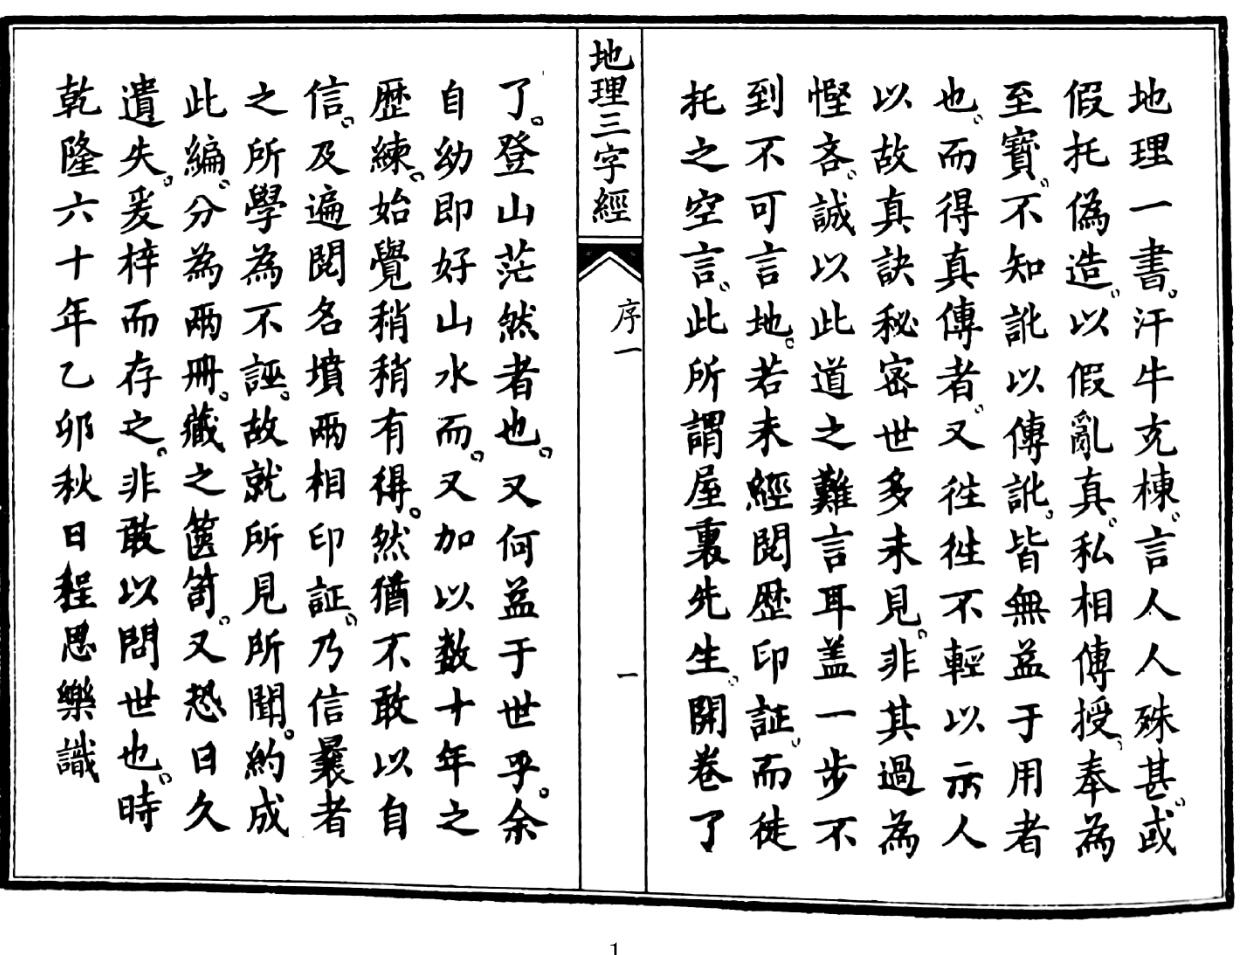 地理一書。汗牛充棟。言人人殊甚。或
假托偽造。以假亂真。私相傳授。奉為
至寶。不知訛以傳訛。皆無益于用者
也。而得真傳者。又徃徃不輕以示人
以故真訣秘密世多未見。非其過為
慳吝。誠以此道之難言耳盖一步不
到不可言地。若未經閱歷印証。而徒
托之空言。此所謂屋裏先生。開卷了
地理三字經
序一
一
了。登山茫然者也。又何益于世乎。余
自幼即好山水而。又加以数十年之
歷練。始覺稍稍有得。然猶不敢以自
信。及遍閱名墳兩相印証。乃信曩者
之所學為不誣。故就所見所聞。約成
此編。分為兩冊。藏之篋笥。又恐日久
遺失。爰梓而存之。非敢以問世也。時
乾隆六十年乙卯秋日程思樂識
1